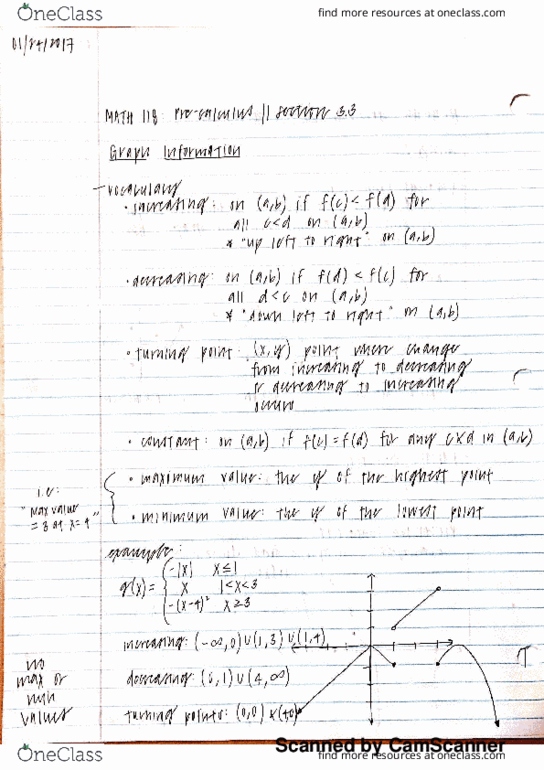 OneClass
find more resources at oneclass.com
01/24/2017
MATH 118: Pre-calculus || section 3.3
Graph Information
- vocabulary
• increasing: on (a,b) if f(c) < f(d) for
all c<d on (a,b)
* "up left to right" on (a,b)
• decreasing: on (a,b) if f(d) < f(c) for
all d<c on (a,b)
* "down left to right" on (a,b)
• turning point: (x,y) point where change
from increasing to decreasing
or decreasing to increasing
occurs
• constant: on (a,b) if f(c) = f(d) for any c&d in (a,b)
• maximum value: the y of the highest point
i.e:
"max value
= 3 at x = 4"
• minimum value: the y of the lowest point
example:
g(x) = { -|x| x ≤ 1
x 1<x<3
-(x-4)² x ≥ 3
increasing: (-∞,0) ∪ (1,3) ∪ (3,4)
decreasing: (0,1) ∪ (4,∞)
turning points: (0,0) &
no
max or
min
values
Scanned by CamScanner
OneClass
find more resources at oneclass.com